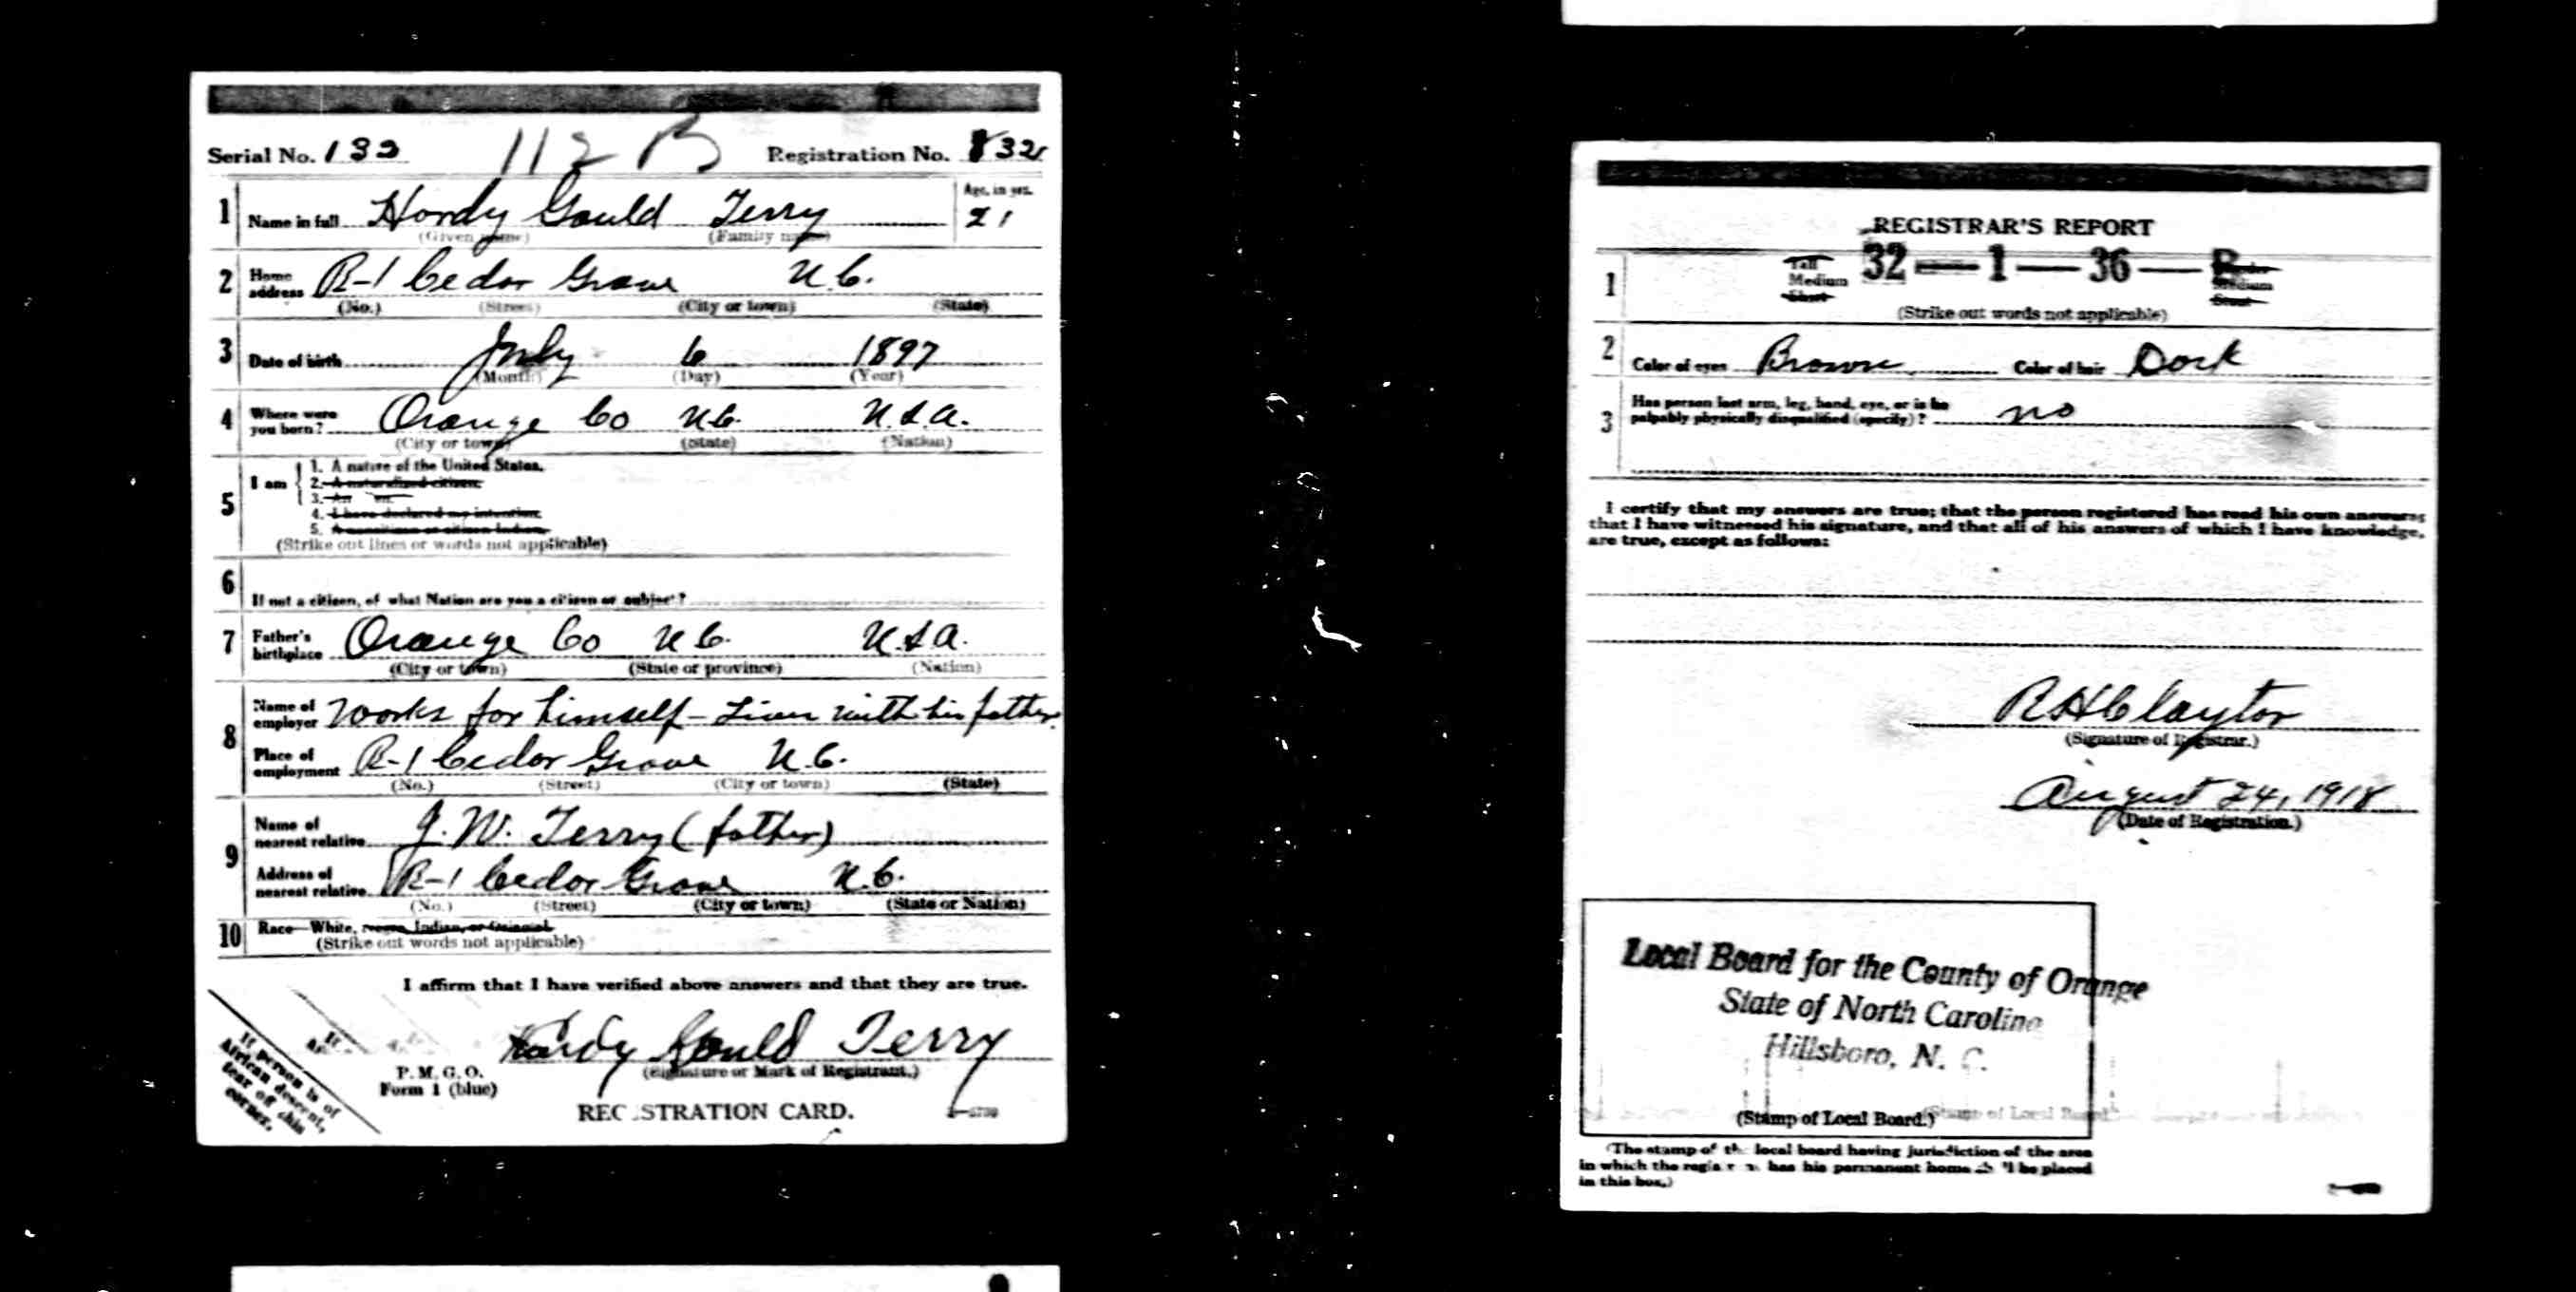 Serial No. 132 112 B Registration No. 832
1 Name in full Hardy Gould Terry Age, in yrs. 21
(Given name) (Family name)
2 Home address R-1 Cedar Grove N.C.
(No.) (Street) (City or town) (State)
3 Date of birth July 6 1897
(Month) (Day) (Year)
4 Where were you born? Orange Co N.C. U.S.A.
(City or town) (State) (Nation)
5 I am
1. A native of the United States.
2. A naturalized citizen.
3. An
4. I have declared my intention.
5. A noncitizen or citizen Indian.
(Strike out lines or words not applicable)
6 If not a citizen, of what Nation are you a citizen or subject?
7 Father's birthplace Orange Co N.C. U.S.A.
(City or town) (State or province) (Nation)
8 Name of employer works for himself - Lives with his father
Place of employment R-1 Cedar Grove N.C.
(No.) (Street) (City or town) (State)
9 Name of nearest relative J. W. Terry (father)
Address of nearest relative R-1 Cedar Grove N.C.
(No.) (Street) (City or town) (State or Nation)
10 Race—White, Negro, Indian, or Oriental.
(Strike out words not applicable)
I affirm that I have verified above answers and that they are true.
Hardy Gould Terry
(Signature or Mark of Registrant.)
P. M. G. O.
Form 1 (blue)
REG STRATION CARD.
If person is of
African descent,
tear off this
corner.
REGISTRAR'S REPORT
32 — 1 — 36 — B
1 Tall Medium Short Slender Medium Stout
(Strike out words not applicable)
2 Color of eyes Brown Color of hair Dark
3 Has person lost arm, leg, hand, eye, or is he
palpably physically disqualified (specify)? no
I certify that my answers are true; that the person registered has read his own answers;
that I have witnessed his signature, and that all of his answers of which I have knowledge,
are true, except as follows:
R H Clayton
(Signature of Registrar.)
August 24, 1918
(Date of Registration.)
Local Board for the County of Orange
State of North Carolina
Hillsboro, N. C.
(Stamp of Local Board.)
(The stamp of the local board having jurisdiction of the area
in which the registrant has his permanent home shall be placed
in this box.)